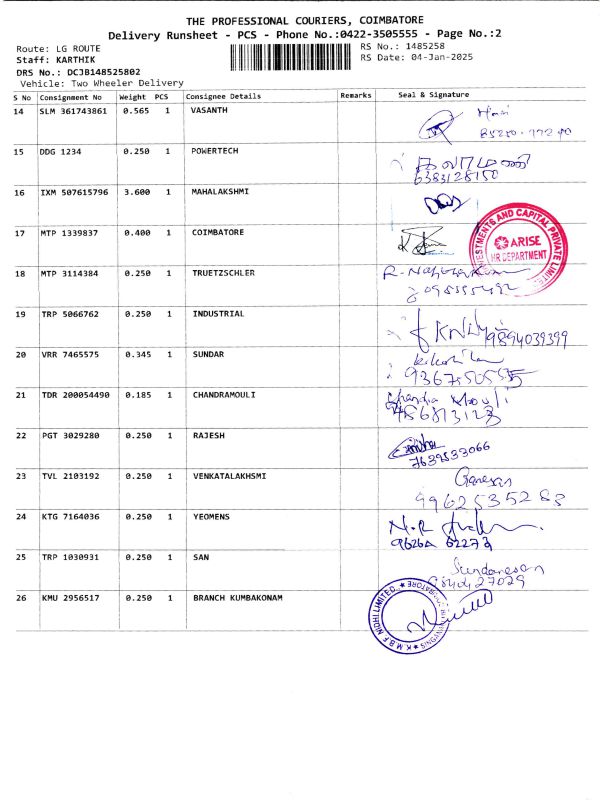 THE PROFESSIONAL COURIERS, COIMBATORE
Delivery Runsheet - PCS - Phone No.:0422-3505555 - Page No.:2
Route: LG ROUTE RS No.: 1485258
Staff: KARTHIK RS Date: 04-Jan-2025
DRS No.: DCJB148525802
Vehicle: Two Wheeler Delivery
S No Consignment No Weight PCS Consignee Details Remarks Seal & Signature
14 SLM 361743861 0.565 1 VASANTH
15 DDG 1234 0.250 1 POWERTECH
6383128150
16 IXM 507615796 3.600 1 MAHALAKSHMI
17 MTP 1339837 0.400 1 COIMBATORE
INVESTMENTS AND CAPITAL PRIVATE LIMITED
ARISE
HR DEPARTMENT
18 MTP 3114384 0.250 1 TRUETZSCHLER
19 TRP 5066762 0.250 1 INDUSTRIAL
9894039399
20 VRR 7465575 0.345 1 SUNDAR
21 TDR 200054490 0.185 1 CHANDRAMOULI
Chandra Mouli
22 PGT 3029280 0.250 1 RAJESH
7639533066
23 TVL 2103192 0.250 1 VENKATALAKHSMI
Ganesan
9962535283
24 KTG 7164036 0.250 1 YEOMENS
N.R
9626A 62273
25 TRP 1030931 0.250 1 SAN
Sundaresan
26 KMU 2956517 0.250 1 BRANCH KUMBAKONAM
K.M.B.F NIDHI LIMITED